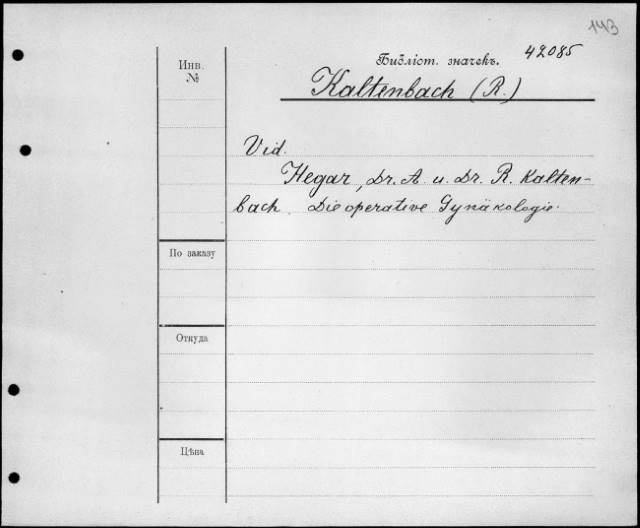 143
Инв.
№
Библіот. значекъ. 42085
Kaltenbach (R.)
Vid.
Hegar, Dr. A. u. Dr. R. Kalten-
bach. Die operative Gynäkologie.
По заказу
Откуда
Цѣна